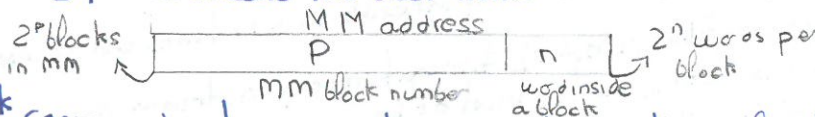 MM address
2^p blocks in MM
P
n
2^n words per block
MM block number
word inside a block